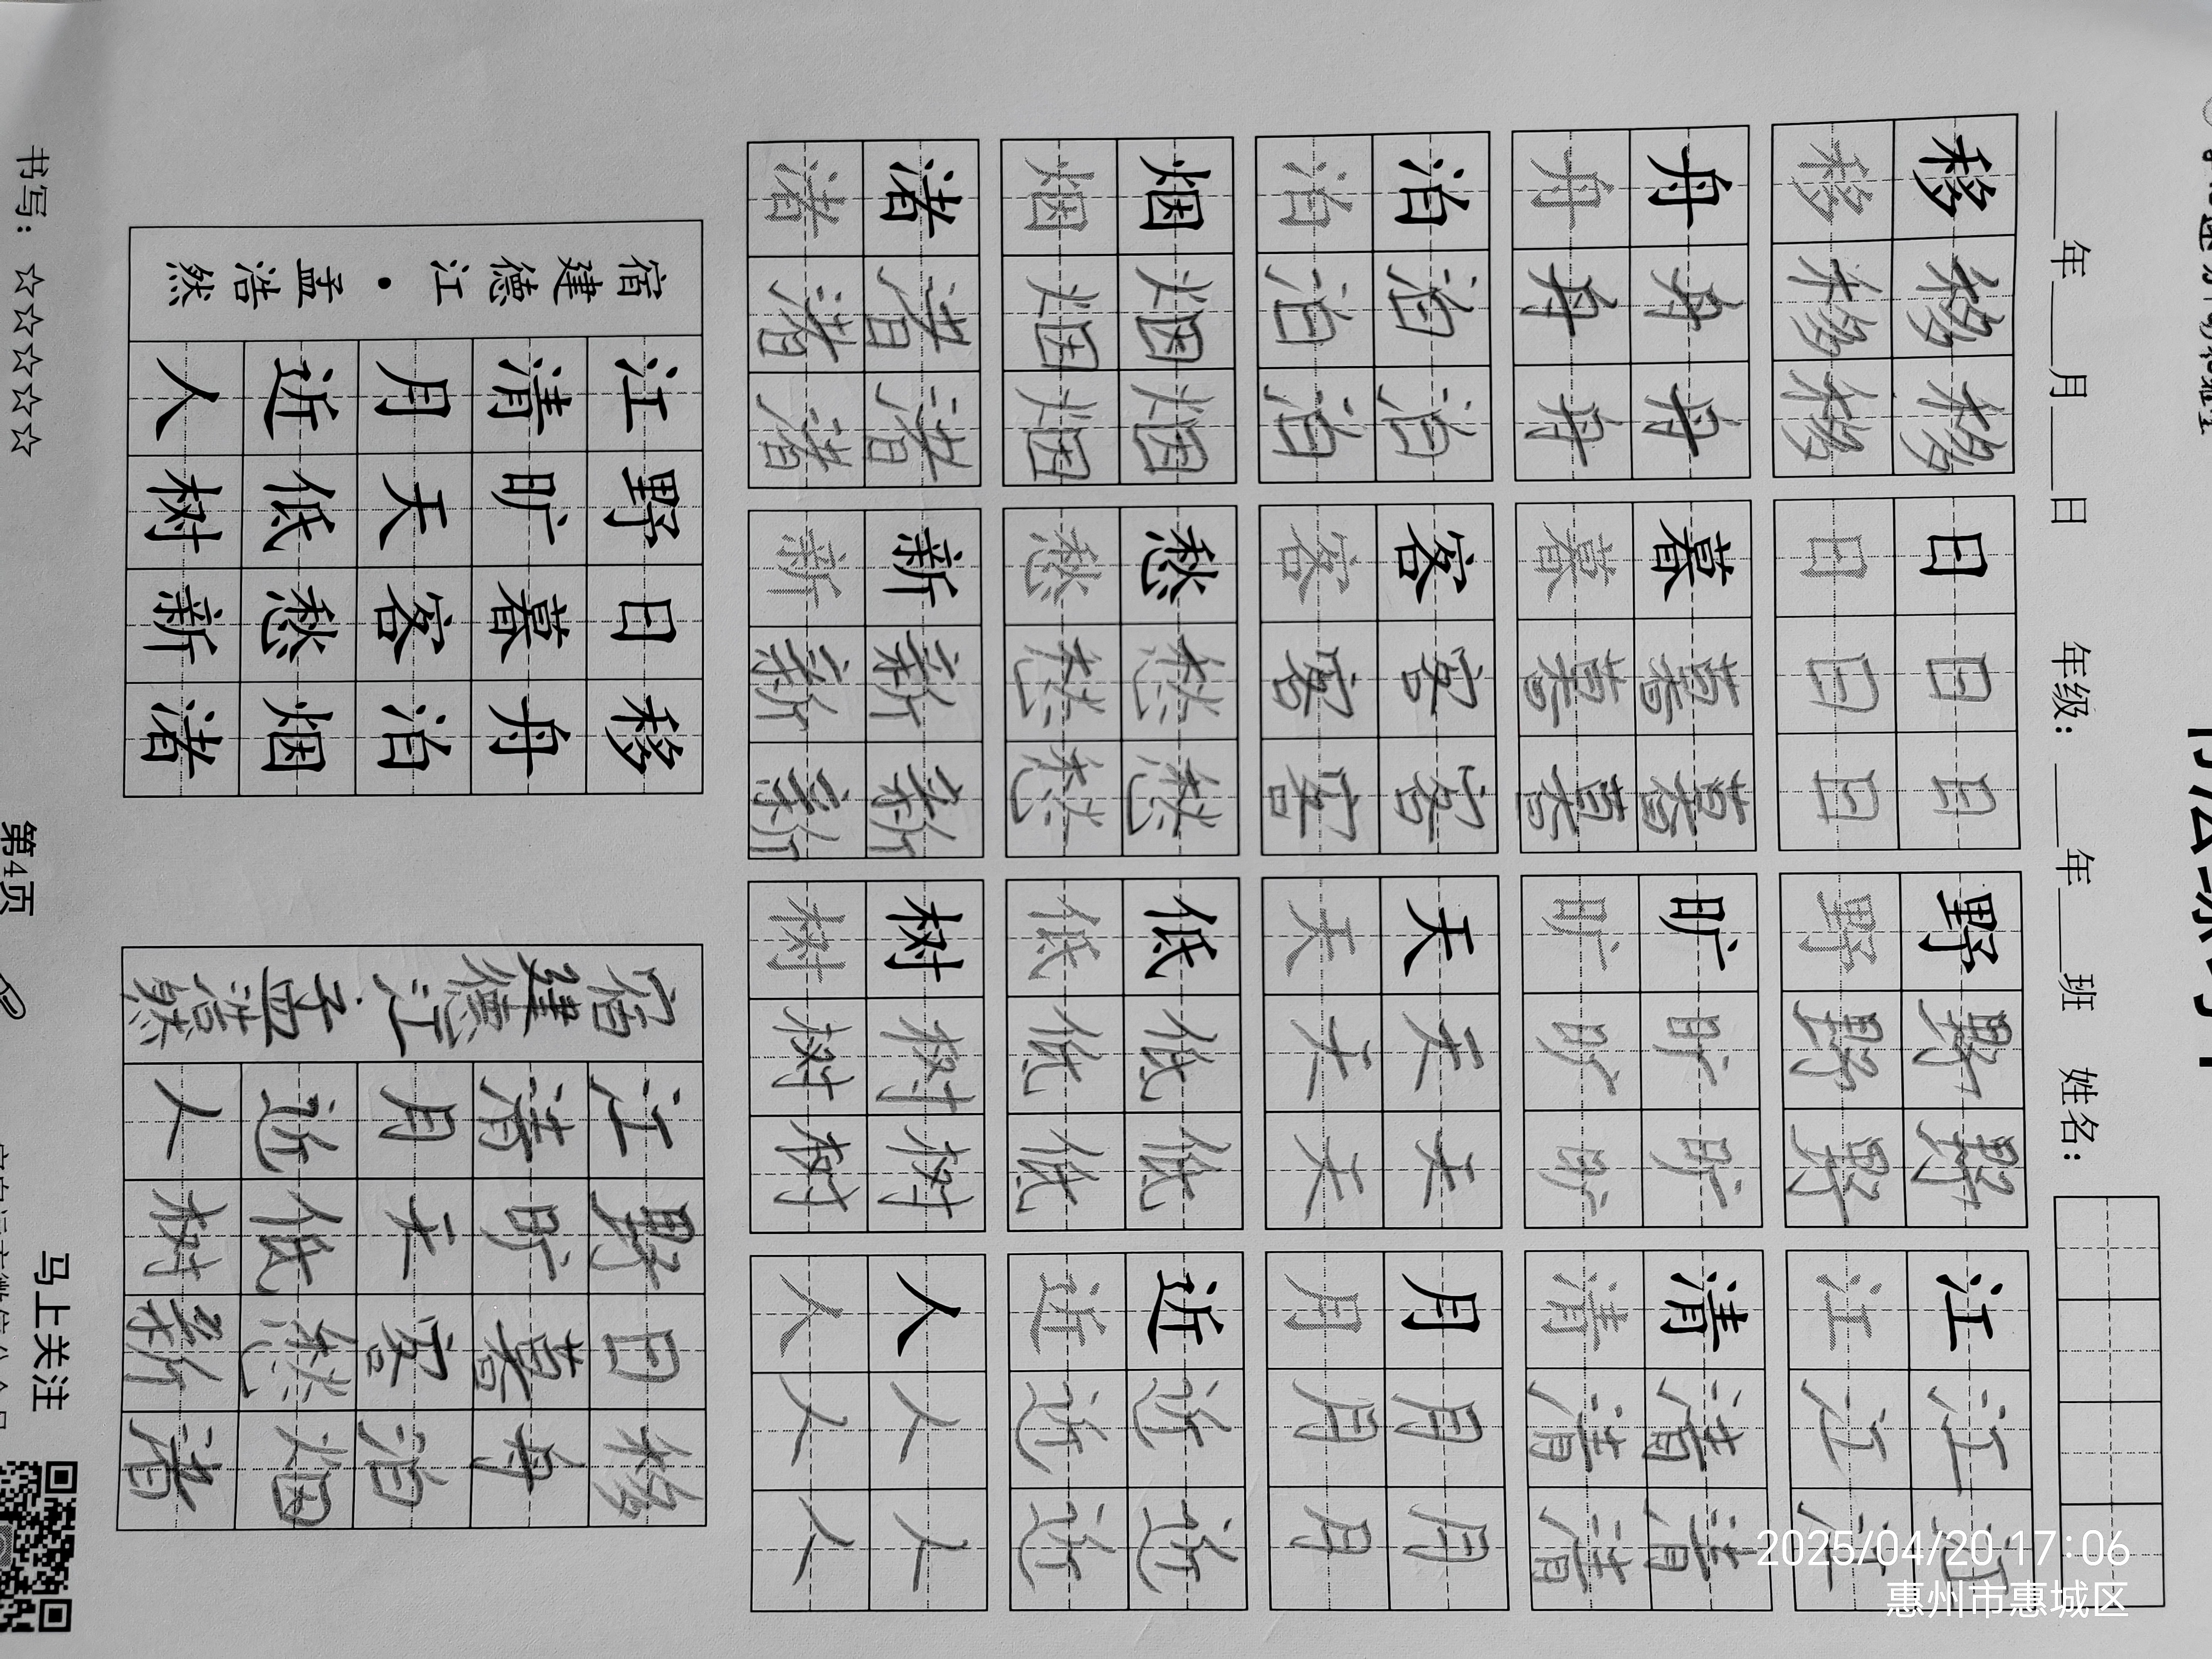 ___年___月___日 年级:___年___班 姓名:
移移移日日日野野野江江
移移移日日日野野野江江
舟舟舟暮暮暮旷旷旷清清清
舟舟舟暮暮暮旷旷旷清清清
泊泊泊客客客天天天月月月
泊泊泊客客客天天天月月月
烟烟烟愁愁愁低低低近近近
烟烟烟愁愁愁低低低近近近
渚渚渚新新新树树树人人人
渚渚渚新新新树树树人人人
移舟泊烟渚
日暮客愁新
野旷天低树
江清月近人
宿建德江·孟浩然
移舟泊烟渚
日暮客愁新
野旷天低树
江清月近人
宿建德江·孟浩然
书写:☆☆☆☆☆
第4页
马上关注
2025/04/20 17:06
惠州市惠城区